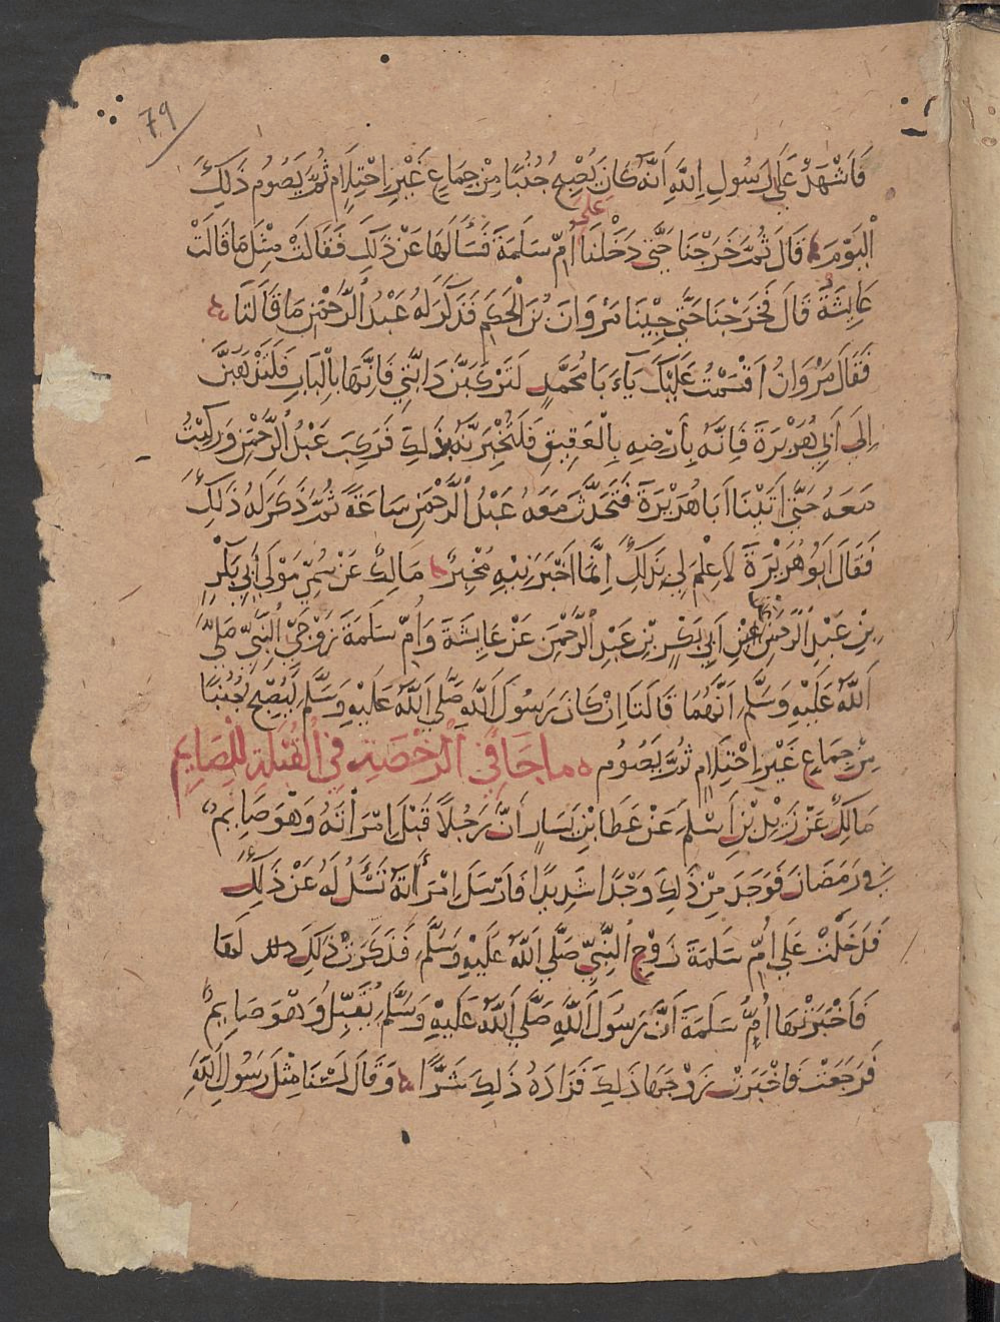 79
فَأَشْهَدُ عَلَى رَسُولِ اللَّهِ أَنَّهُ كَانَ يُصْبِحُ جُنُبًا مِنْ جِمَاعٍ غَيْرِ احْتِلَامٍ ثُمَّ يَصُومُ ذَلِكَ
الْيَوْمَ قَالَ ثُمَّ خَرَجْنَا حَتَّى دَخَلْنَا عَلَى أُمِّ سَلَمَةَ فَسَأَلَهَا عَنْ ذَلِكَ فَقَالَتْ مِثْلَ مَا قَالَتْ
عَايِشَةُ قَالَ فَخَرَجْنَا حَتَّى جِيْنَا مَرْوَانَ بْنَ الْحَكَمِ فَذَكَرَ لَهُ عَبْدُ الرَّحْمَنِ مَا قَالَتَا
فَقَالَ مَرْوَانُ أَقْسَمْتُ عَلَيْكَ يَاءَبَا مُحَمَّدٍ لَتَرْكَبَنَّ دَابَّتِي فَإِنَّهَا بِالْبَابِ فَلَتَذْهَبَنَّ
إِلَى أَبِي هُرَيْرَةَ فَإِنَّهُ بِأَرْضِهِ بِالْعَقِيقِ فَلَتُخْبِرَنَّهُ بِذَلِكَ فَرَكِبَ عَبْدُ الرَّحْمَنِ وَرَكِبْتُ
مَعَهُ حَتَّى أَتَيْنَا أَبَا هُرَيْرَةَ فَتَحَدَّثَ مَعَهُ عَبْدُ الرَّحْمَنِ سَاعَةً ثُمَّ ذَكَرَ لَهُ ذَلِكَ
فَقَالَ أَبُو هُرَيْرَةَ لَا عِلْمَ لِي بِذَلِكَ إِنَّمَا أَخْبَرَنِيهِ مُخْبِرٌ مَالِكٌ عَنْ سُمَيٍّ مَوْلَى أَبِي بَكْرِ
بْنِ عَبْدِ الرَّحْمَنِ عَنْ أَبِي بَكْرِ بْنِ عَبْدِ الرَّحْمَنِ عَنْ عَايِشَةَ وَأُمِّ سَلَمَةَ زَوْجَيِ النَّبِيِّ صَلَّى
اللَّهُ عَلَيْهِ وَسَلَّمَ أَنَّهُمَا قَالَتَا إِنْ كَانَ رَسُولُ اللَّهِ صَلَّى اللَّهُ عَلَيْهِ وَسَلَّمَ لَيُصْبِحُ جُنُبًا
مِنْ جِمَاعٍ غَيْرِ احْتِلَامٍ ثُمَّ يَصُومُ مَا جَا فِي الرُّخْصَةِ فِي الْقُبْلَةِ لِلصَّايِمِ
مَالِكٌ عَنْ زَيْدِ بْنِ أَسْلَمَ عَنْ عَطَا بْنِ يَسَارٍ أَنَّ رَجُلًا قَبَّلَ امْرَأَتَهُ وَهُوَ صَايِمٌ
فِي رَمَضَانَ فَوَجَدَ مِنْ ذَلِكَ وَجْدًا شَدِيدًا فَأَرْسَلَ امْرَأَتَهُ تَسْئَلُ لَهُ عَنْ ذَلِكَ
فَدَخَلَتْ عَلَى أُمِّ سَلَمَةَ زَوْجِ النَّبِيِّ صَلَّى اللَّهُ عَلَيْهِ وَسَلَّمَ فَذَكَرَتْ ذَلِكَ لَهَا
فَأَخْبَرَتْهَا أُمُّ سَلَمَةَ أَنَّ رَسُولَ اللَّهِ صَلَّى اللَّهُ عَلَيْهِ وَسَلَّمَ يُقَبِّلُ وَهُوَ صَايِمٌ
فَرَجَعَتْ فَاخْبَرَتْ زَوْجَهَا ذَلِكَ فَزَادَهُ ذَلِكَ شَرًّا وَقَالَ لَسْنَا مِثْلَ رَسُولِ اللَّهِ